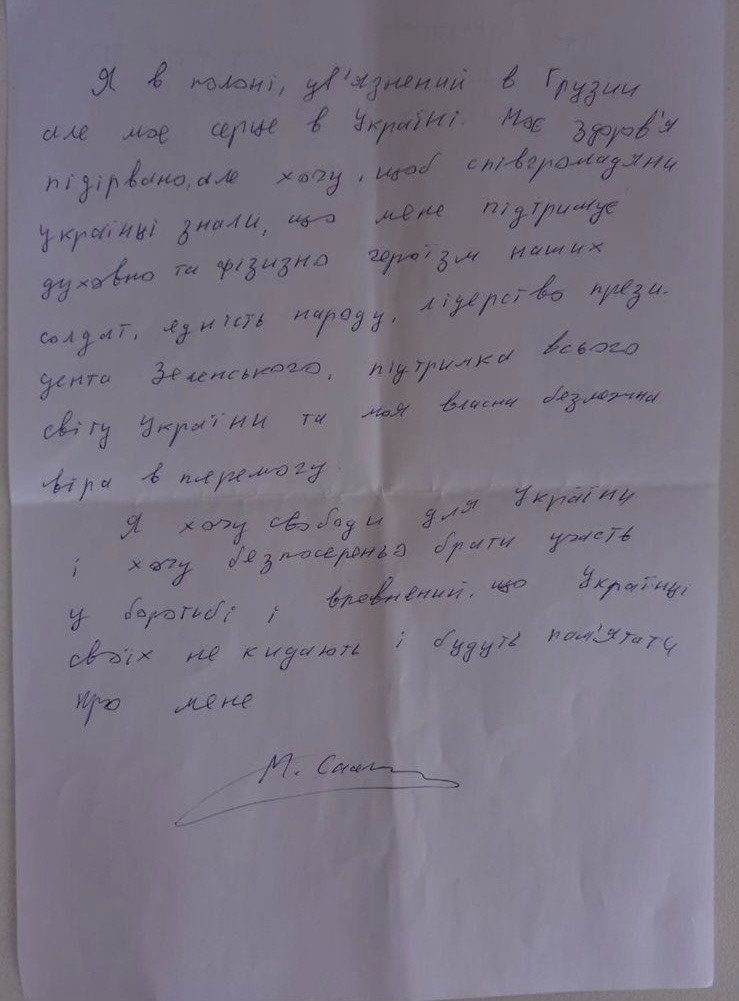 Я в полоні, ув'язнений в Грузии
але моє серце в Україні. Моє здоров'я
підірвано, але хочу, щоб співгромадяни
українці знали, що мене підтримує
духовно та фізизно героїзм наших
солдат, єдність народу, лідерство прези-
дента Зеленського, підтримка всього
світу України та моя власна безмежна
віра в перемогу.
Я хочу свободи для України
і хочу безпосереньо брати участь
у боротьбі і впевнений, що Українці
своїх не кидають і будуть пам'ятати
про мене
М.